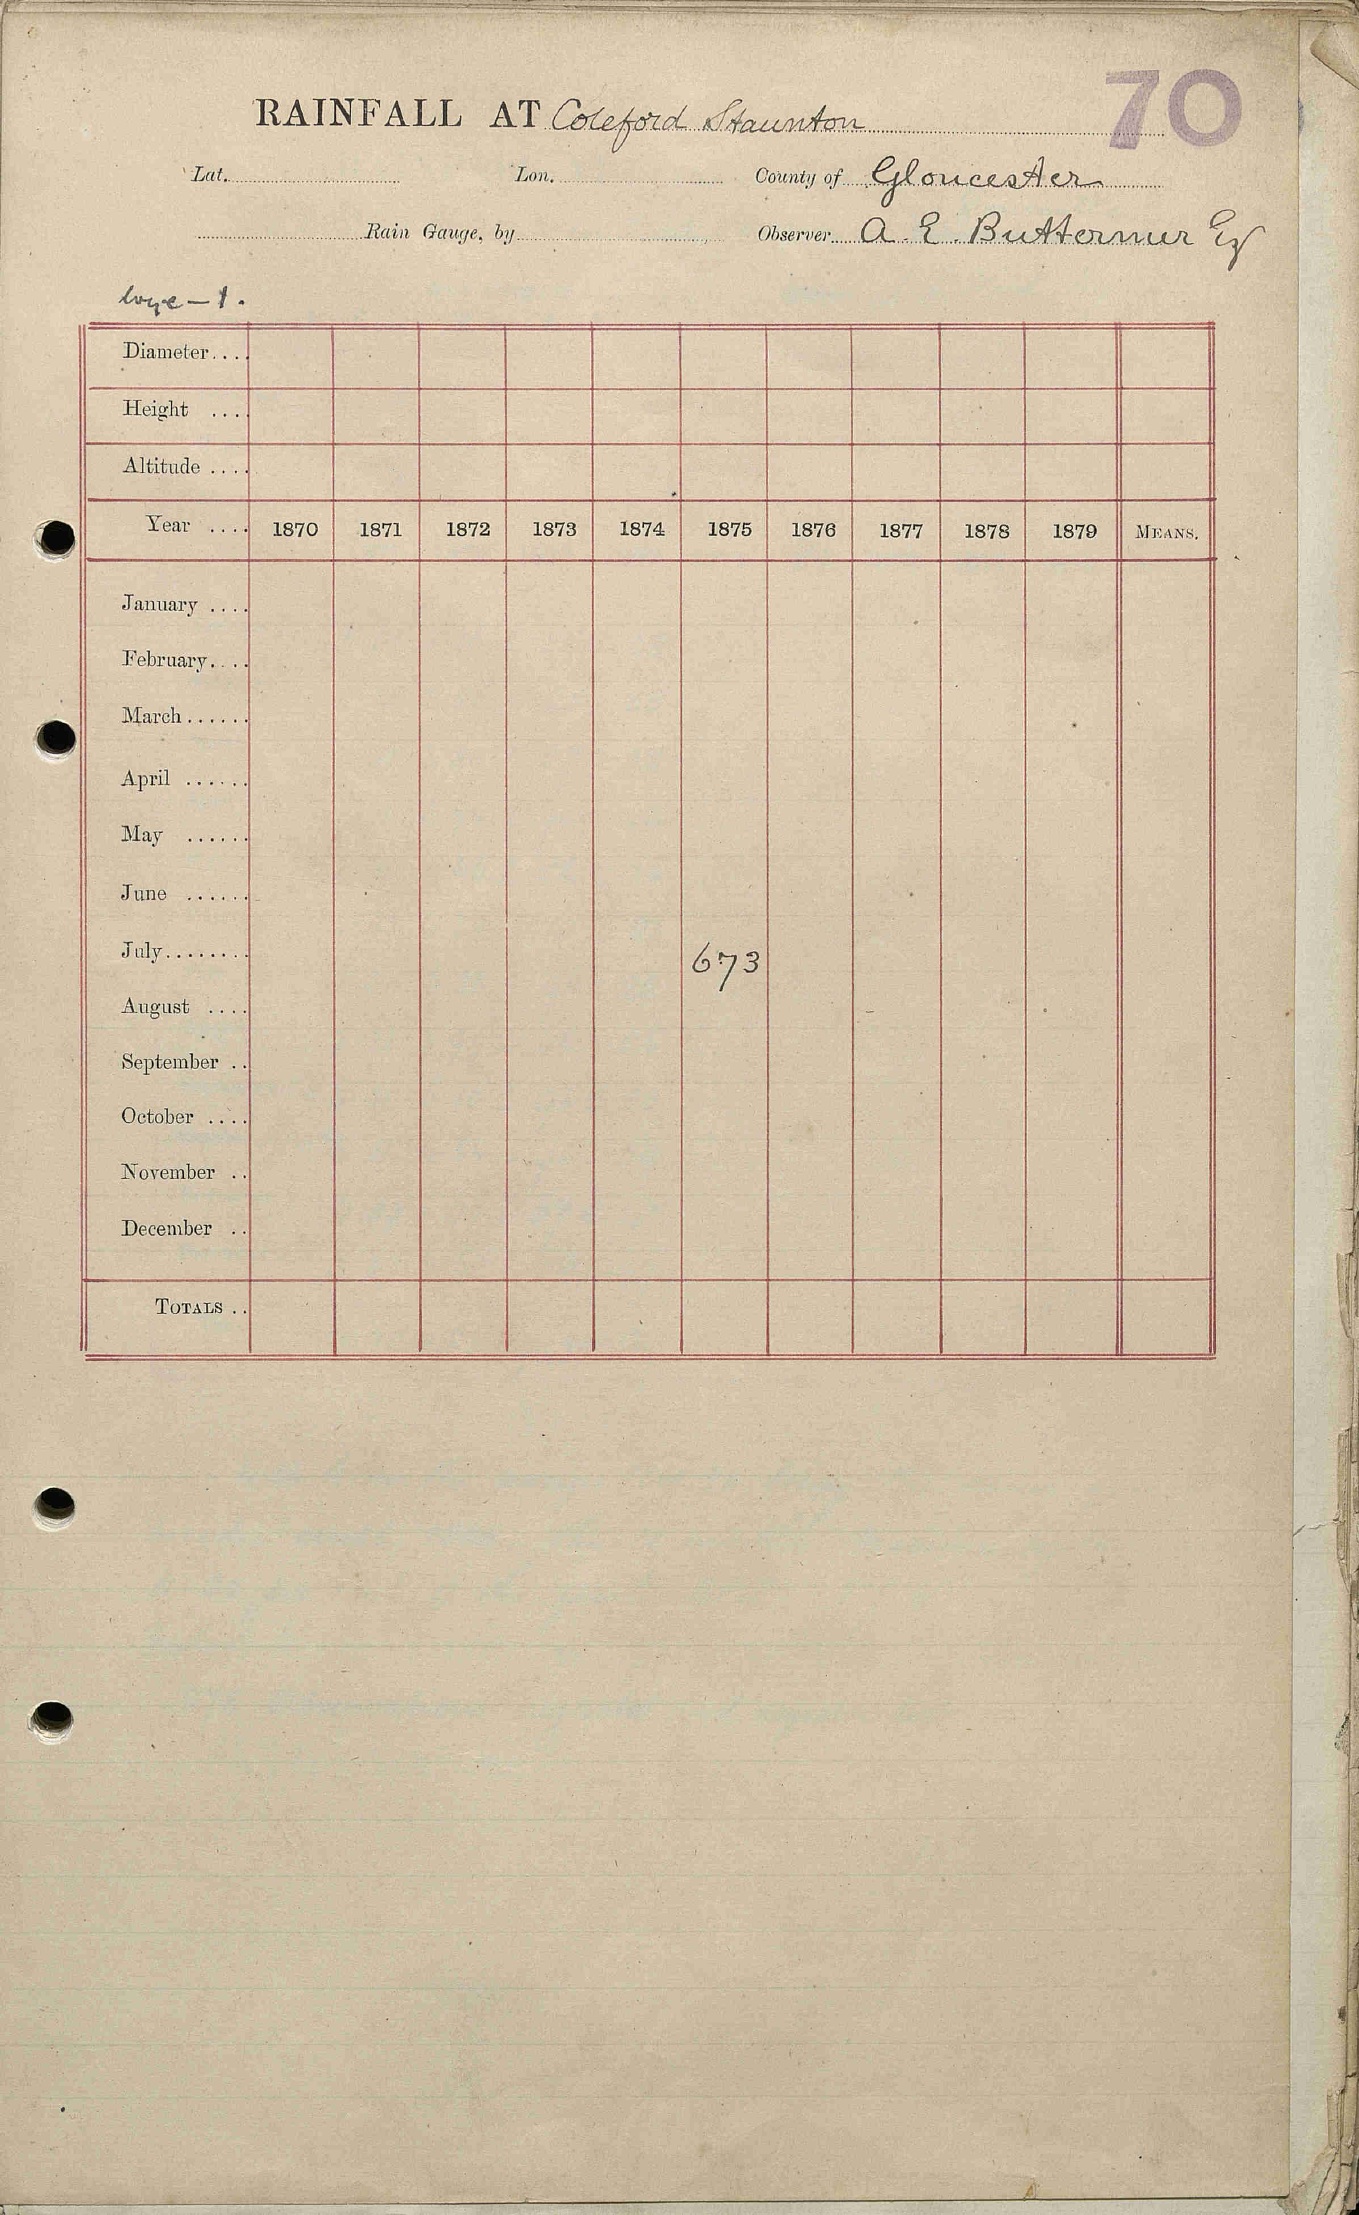 70
RAINFALL AT Coleford Staunton
Lat. Lon. County of Gloucester
Rain Gauge, by Observer A. E. Buttermer Esq
Wye – 1.
Diameter....
Height ....
Altitude ....
Year .... 1870 1871 1872 1873 1874 1875 1876 1877 1878 1879 MEANS.
January ....
February....
March......
April ......
May ......
June ......
July........ 673
August ....
September ..
October ....
November ..
December ..
TOTALS ..